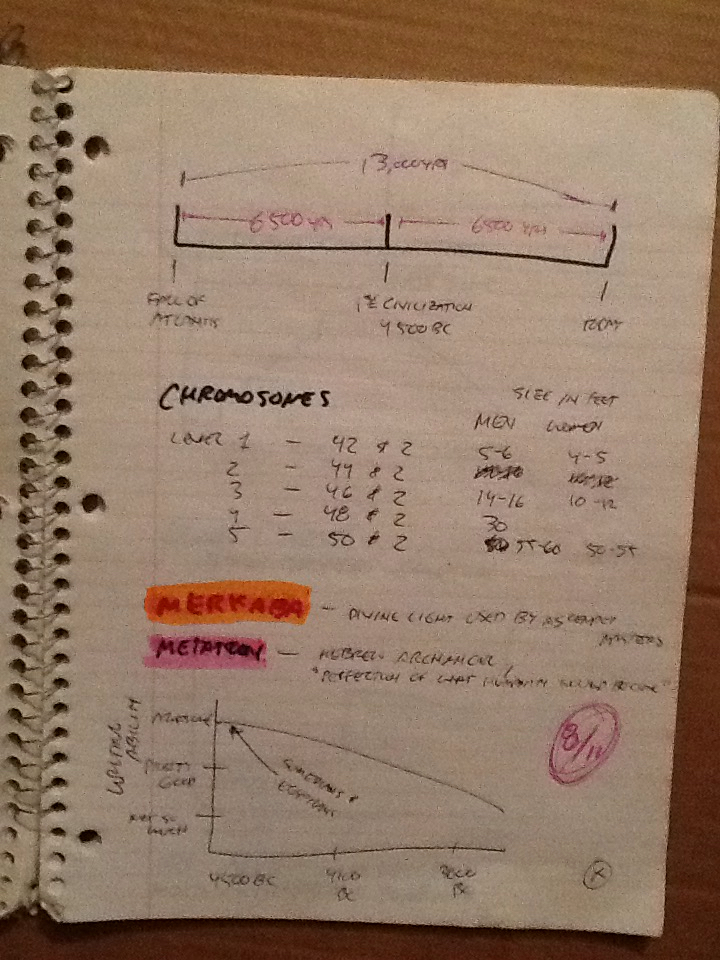 13,000 YR
6500 YR 6500 YR
FALL OF
ATLANTIS
1ST CIVILIZATION
4500 BC
TODAY
CHROMOSOMES
SIZE IN FEET
MEN WOMEN
LEVEL 1 - 42 & 2 5-6 4-5
2 - 44 & 2
3 - 46 & 2 14-16 10-12
4 - 48 & 2 30
5 - 50 & 2 55-60 50-55
MERKABA - DIVINE LIGHT USED BY ASCENDED
MASTERS
METATRON - HEBREW ARCHANGEL /
"PERFECTION OF WHAT HUMANITY WOULD BECOME"
WRITING
ABILITY
AWESOME
PRETTY
GOOD
NOT SO
MUCH
SUMERIANS &
EGYPTIANS
4500 BC
4100
BC
3000
BC
8/11
K